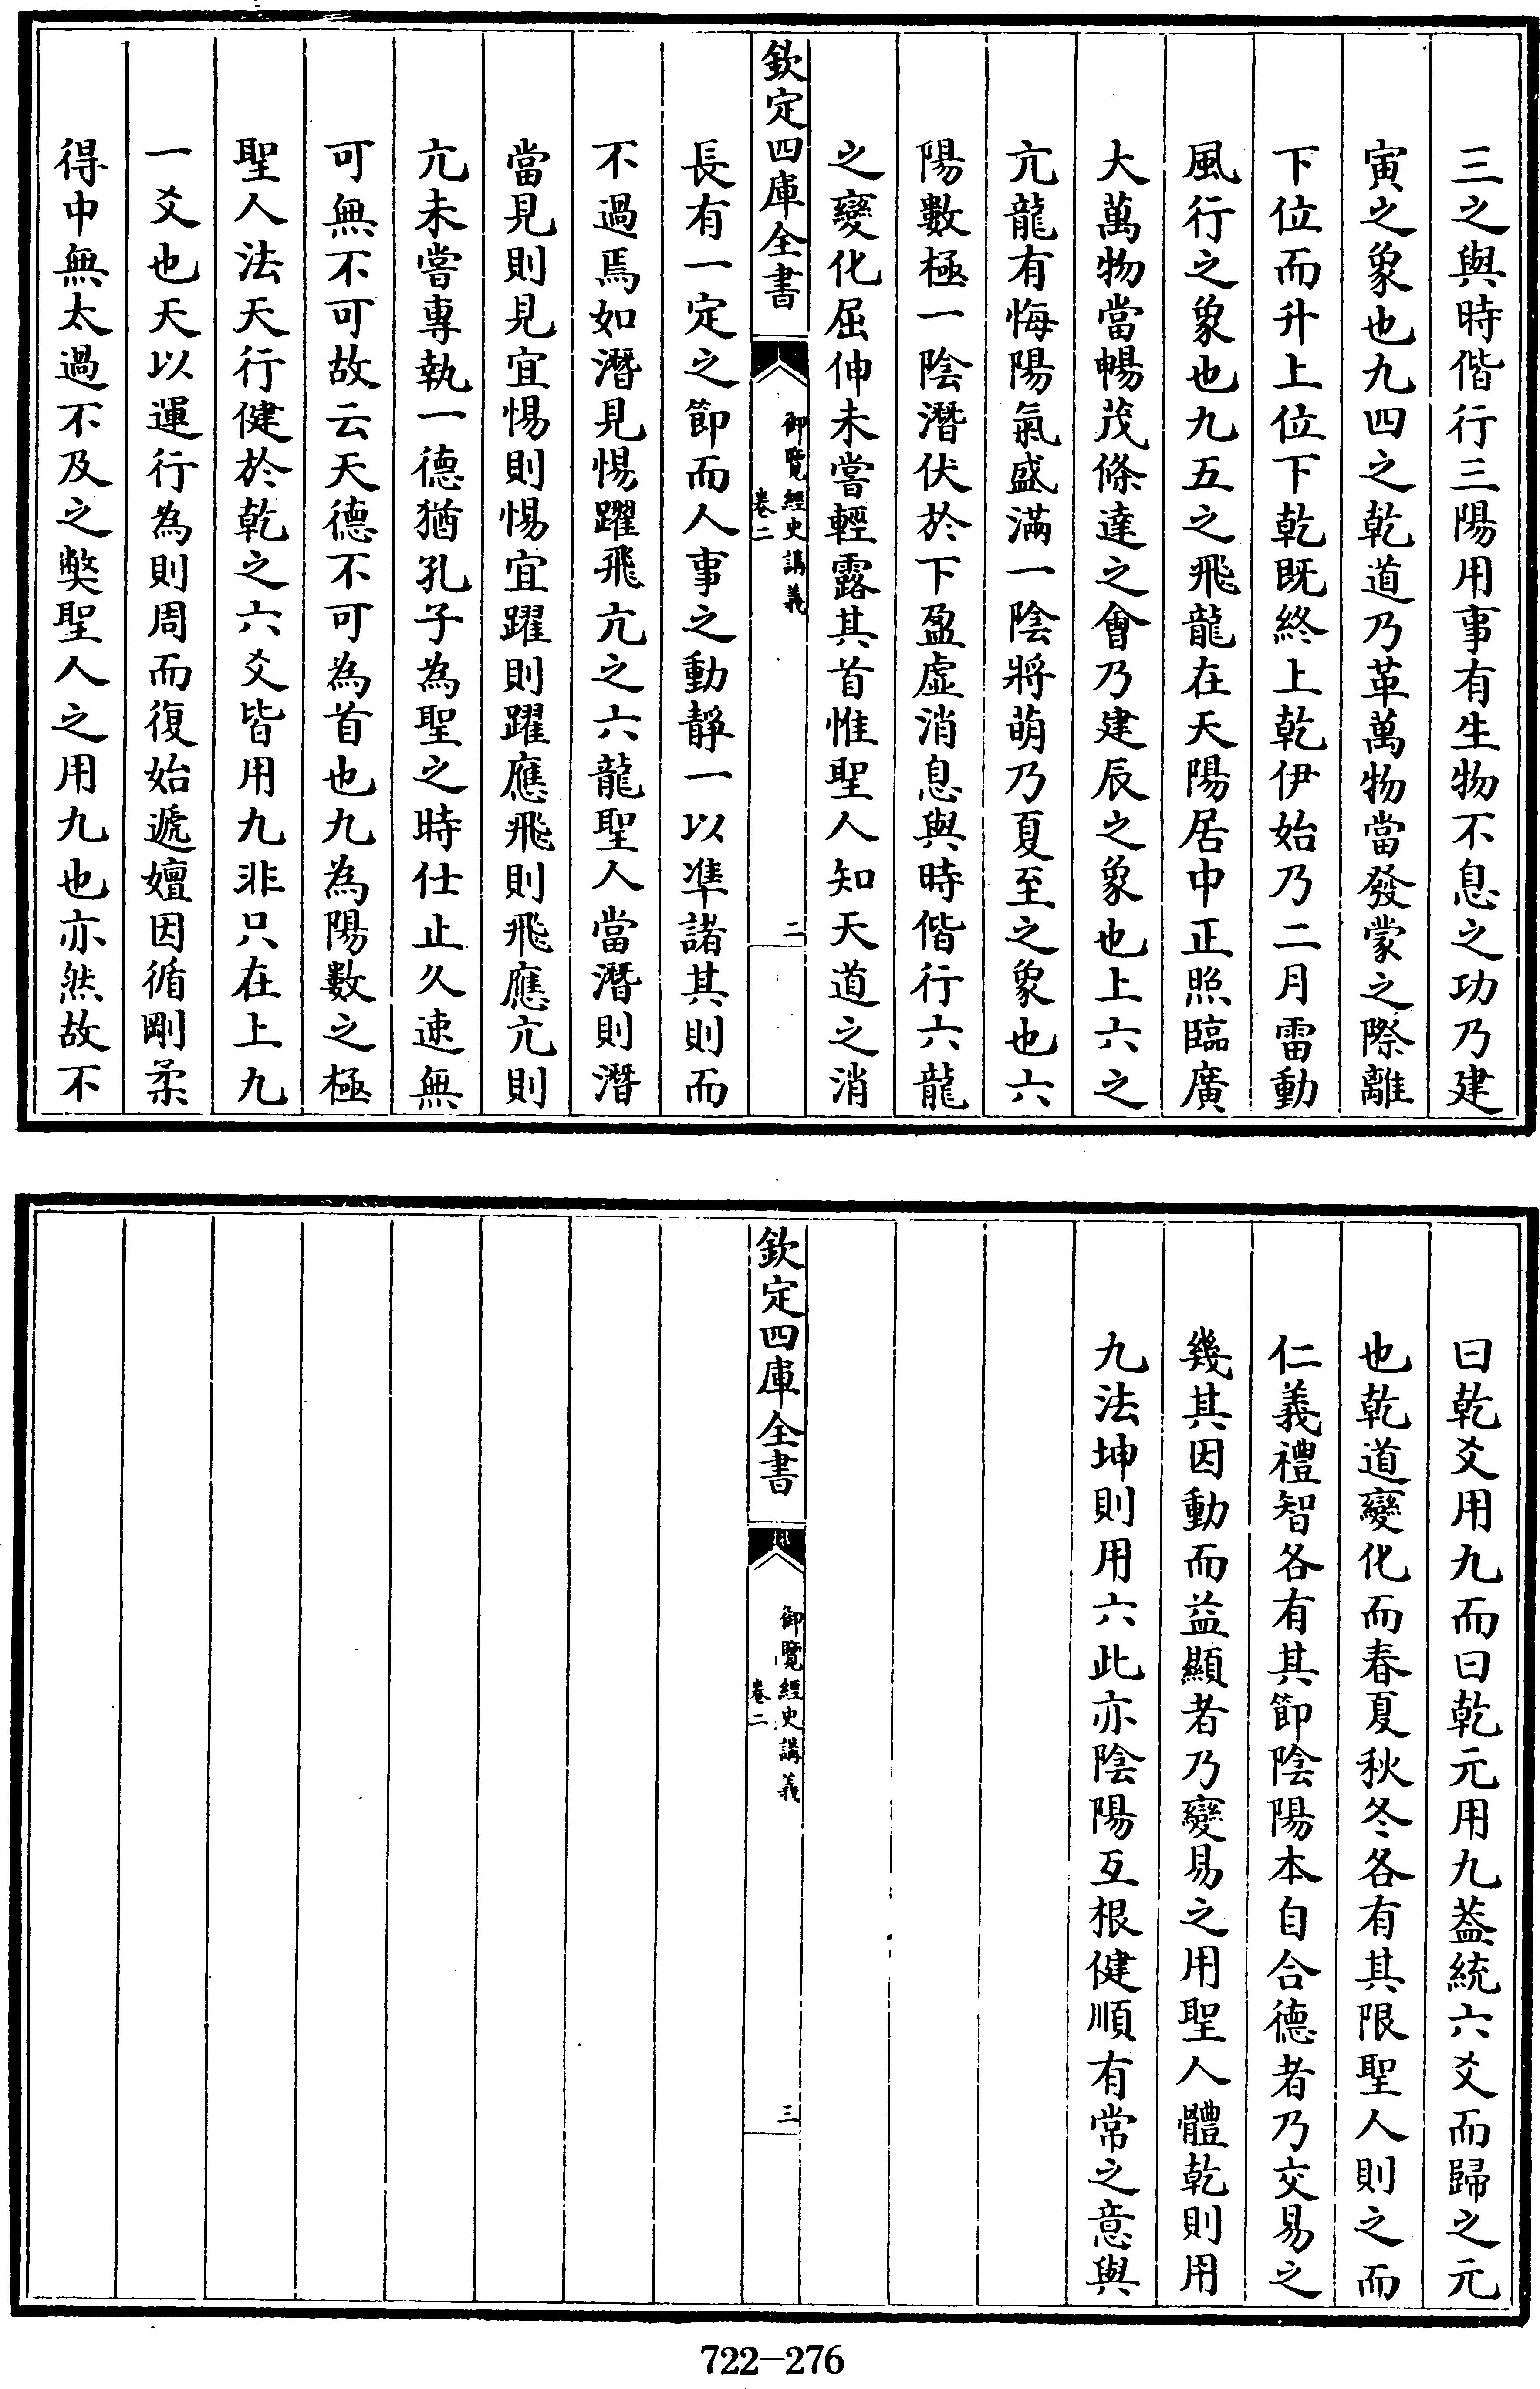 三之與時偕行三陽用事有生物不息之功乃建
寅之象也九四之乾道乃革萬物當發蒙之際離
下位而升上位下乾既終上乾伊始乃二月雷動
風行之象也九五之飛龍在天陽居中正照臨廣
大萬物當暢茂條達之會乃建辰之象也上六之
亢龍有悔陽氣盛滿一陰將萌乃夏至之象也六
陽數極一陰潛伏於下盈虛消息與時偕行六龍
之變化屈伸未嘗輕露其首惟聖人知天道之消
欽定四庫全書
御覽經史講義
卷二
二
長有一定之節而人事之動靜一以準諸其則而
不過焉如潛見惕躍飛亢之六龍聖人當潛則潛
當見則見宜惕則惕宜躍則躍應飛則飛應亢則
亢未嘗專執一德猶孔子為聖之時仕止久速無
可無不可故云天德不可為首也九為陽數之極
聖人法天行健於乾之六爻皆用九非只在上九
一爻也天以運行為則周而復始遞嬗因循剛柔
得中無太過不及之獘聖人之用九也亦然故不
曰乾爻用九而曰乾元用九葢統六爻而歸之元
也乾道變化而春夏秋冬各有其限聖人則之而
仁義禮智各有其節陰陽本自合德者乃交易之
幾其因動而益顯者乃變易之用聖人體乾則用
九法坤則用六此亦陰陽互根健順有常之意與
欽定四庫全書
御覽經史講義
卷二
三
722-276